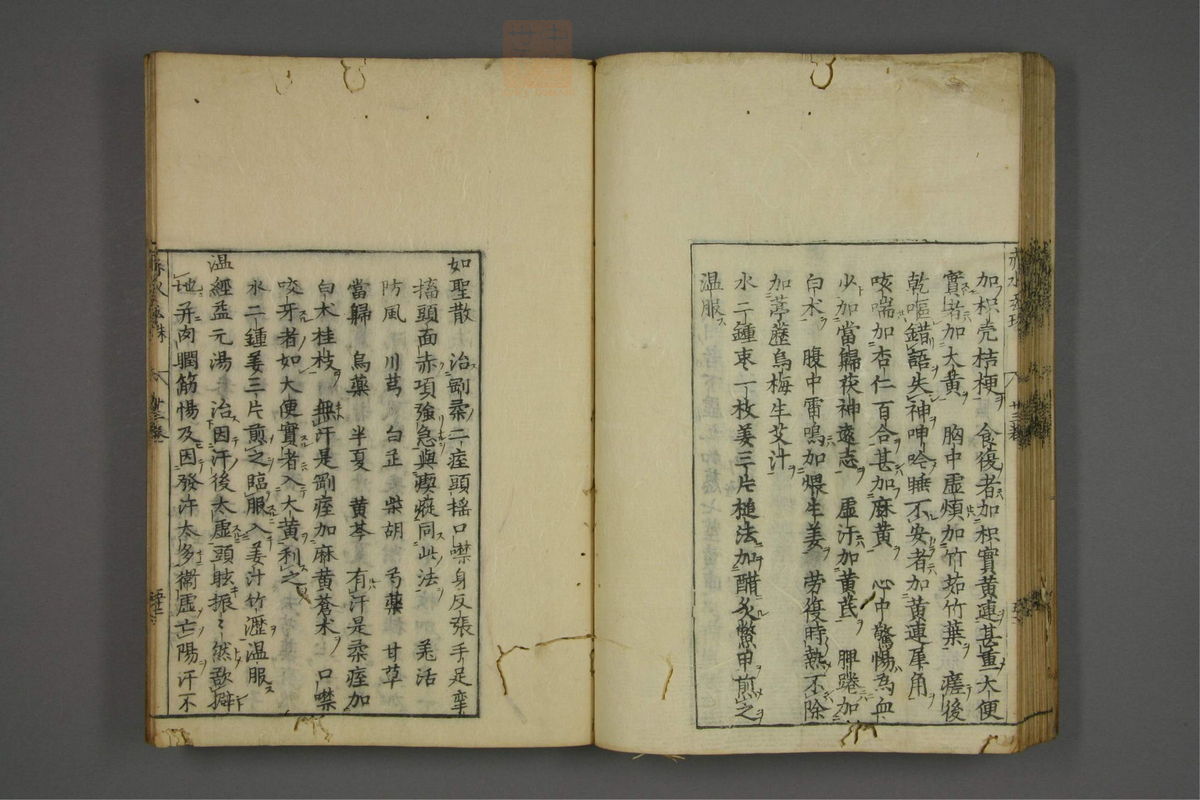 加枳壳桔梗　食復者加枳實黃連甚重大便
實者加大黃　胸中虛煩加竹茹竹葉　瘥後
乾嘔錯語失神呻吟睡不安者加黃連犀角
咳喘加杏仁百合甚加麻黃　心中驚惕為血
少加當歸茯神遠志　虛汗加黃芪　脾踡加
白朮　腹中雷鳴加煨生姜　勞復時熱不除
加葶藶烏梅生艾汁
水二鍾枣一枚姜三片槌法加醋炙鱉甲煎之
溫服
如聖散　治剛柔二痓頭搖口噤身反張手足攣
搐頭面赤項強急與瘈瘲同此法　羌活
防風　川芎　白芷　柴胡　芍藥　甘草
當歸　烏藥　半夏　黃芩　有汗是柔痓加
白朮桂枝　無汗是剛痓加麻黃蒼朮　口噤
咬牙者如大便實者入大黃利之
水二鍾姜三片煎之臨服入姜汁竹瀝溫服
溫經益元湯　治因汗後太虛頭眩振々然欲擗
地并肉瞤筋惕及因發汗太多衛虛亡陽汗不